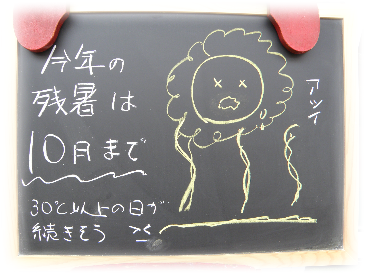 今年の
残暑は
10月まで
30℃以上の日が
続きそう ><
アツイ